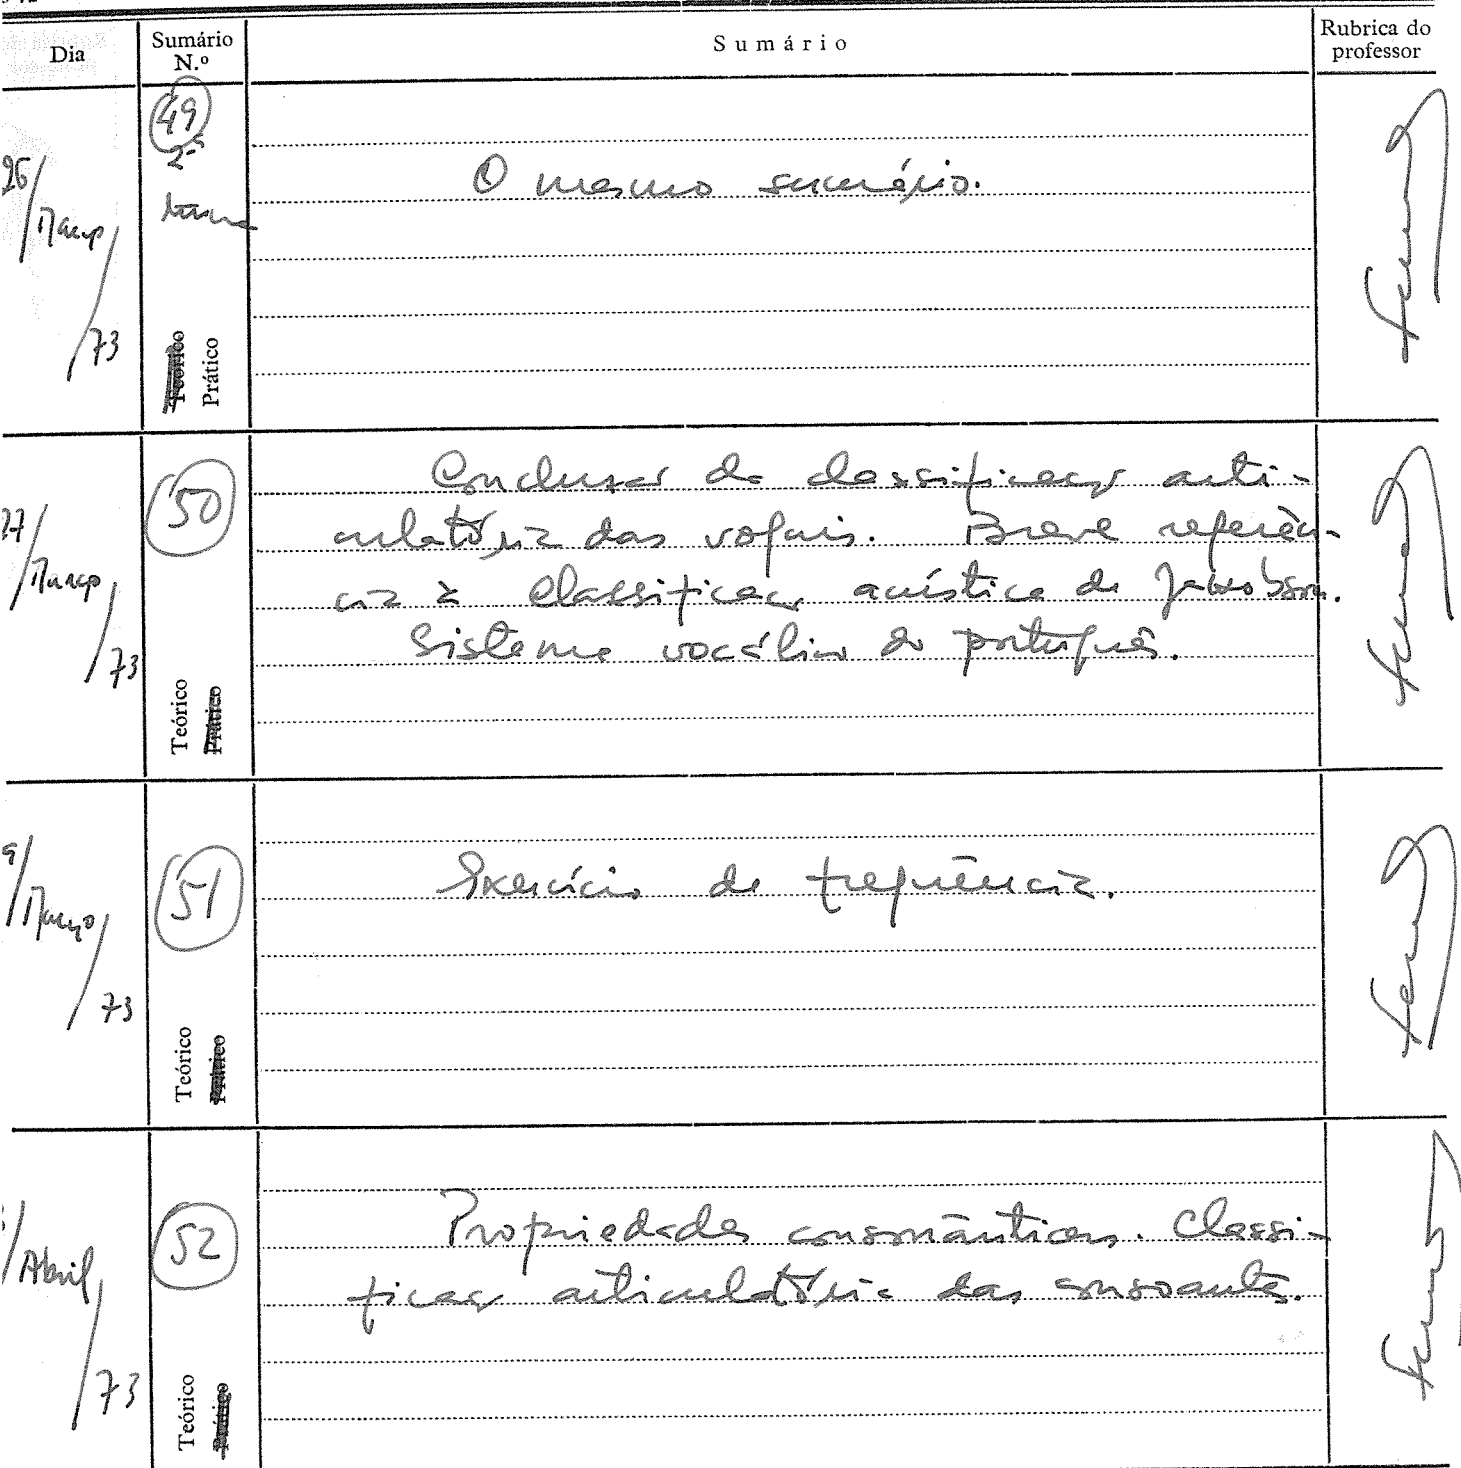 Dia
Sumário N.º
Sumário
Rubrica do professor
26/Março/73
49
2ª
turma
Teórico
Prático
O mesmo sumário.
27/Março/73
50
Teórico
Prático
Conclusão da classificação arti-
culatória das vogais. Breve referên-
cia à classificação acústica de Jakobson.
Sistema vocálico do português.
9/Março/73
51
Teórico
Prático
Exercício de frequência.
/Abril/73
52
Teórico
Prático
Propriedades consonânticas. Classi-
ficação articulatória das consoantes.